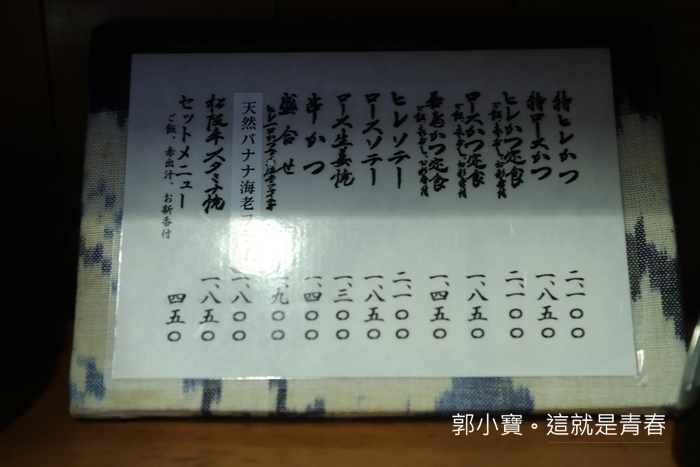 特ヒレかつ 二、一〇〇
特ロースかつ 一、八五〇
ヒレかつ定食 二、一〇〇
ロースかつ定食 一、八五〇
かつ定食 一、四五〇
ヒレソテー 二、一〇〇
ロースソテー 一、八五〇
ロース生姜焼 一、三〇〇
串かつ 一、四〇〇
盛合せ 一、九〇〇
天然バナナ海老フライ 一、八〇〇
松阪牛スタミナ焼 一、八五〇
セットメニュー 四五〇
ご飯、赤出汁、お新香付
郭小寶。這就是青春